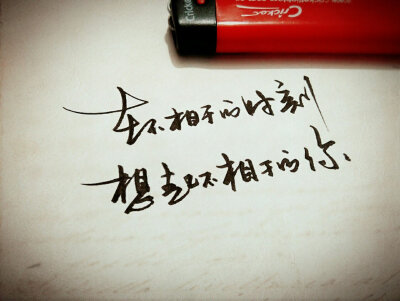 Cricket
在不相干的时刻
想起不相干的你、